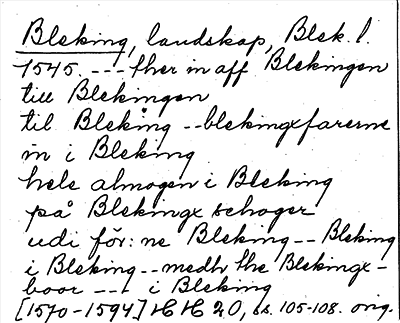 Bleking, landskap, Blek. l.
1545. --- ther in aff Blekingen
till Blekingen
til Bleking -- blekingxfarerne
in i Bleking
hele almogen i Bleking
på Blekingx schoger
udi för: ne Bleking -- Bleking
i Bleking -- medh the Blekingx-
boor --- i Bleking
[1570-1594] HH 20, ss. 105-108. orig.